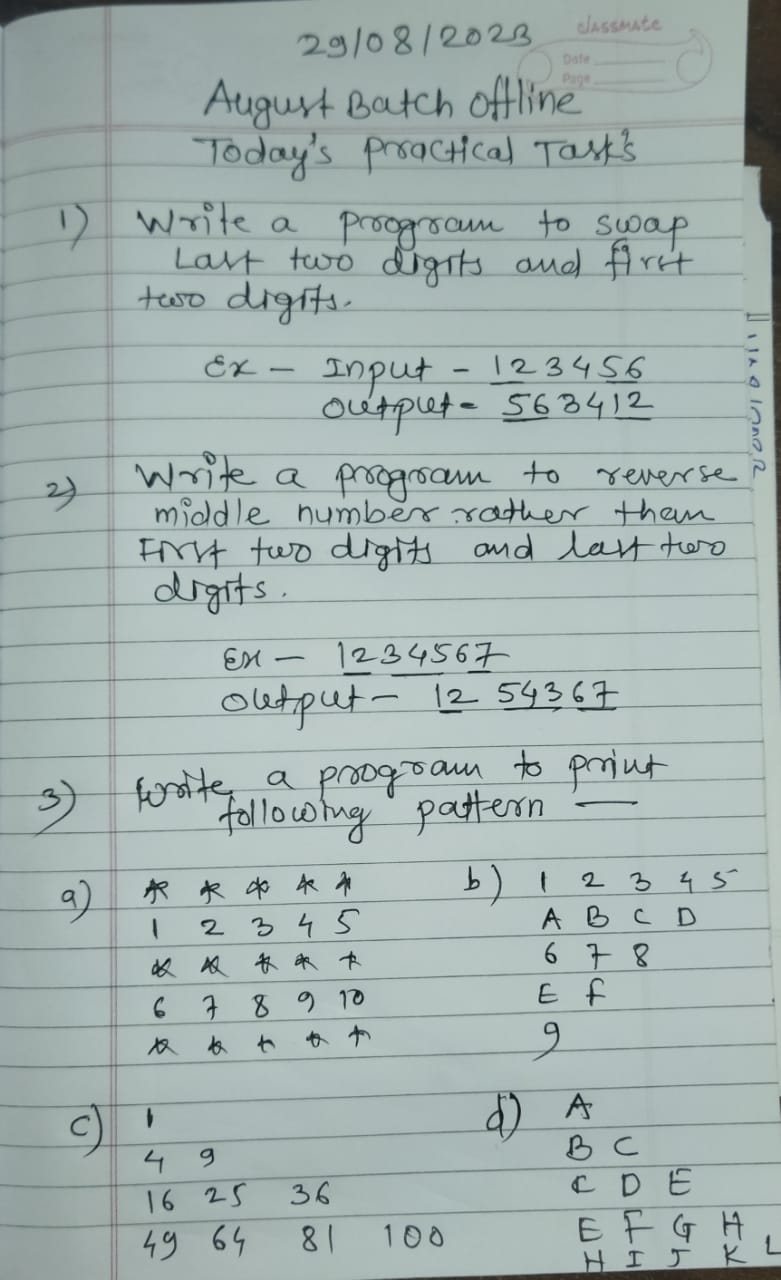 classmate
Date
Page
29/08/2023
August Batch Offline
Today's Practical Task's
1) Write a program to swap
Last two digits and first
two digits.
Ex - Input - 123456
Output - 563412
2) Write a program to reverse
middle number rather than
First two digits and last two
digits.
Ex - 1234567
Output - 12 54367
3) Write a program to print
following pattern —
a) * * * * *
1 2 3 4 5
* * * * *
6 7 8 9 10
* * * * *
b) 1 2 3 4 5
A B C D
6 7 8
E F
9
c) 1
4 9
16 25 36
49 64 81 100
d) A
B C
C D E
E F G H
H I J K L